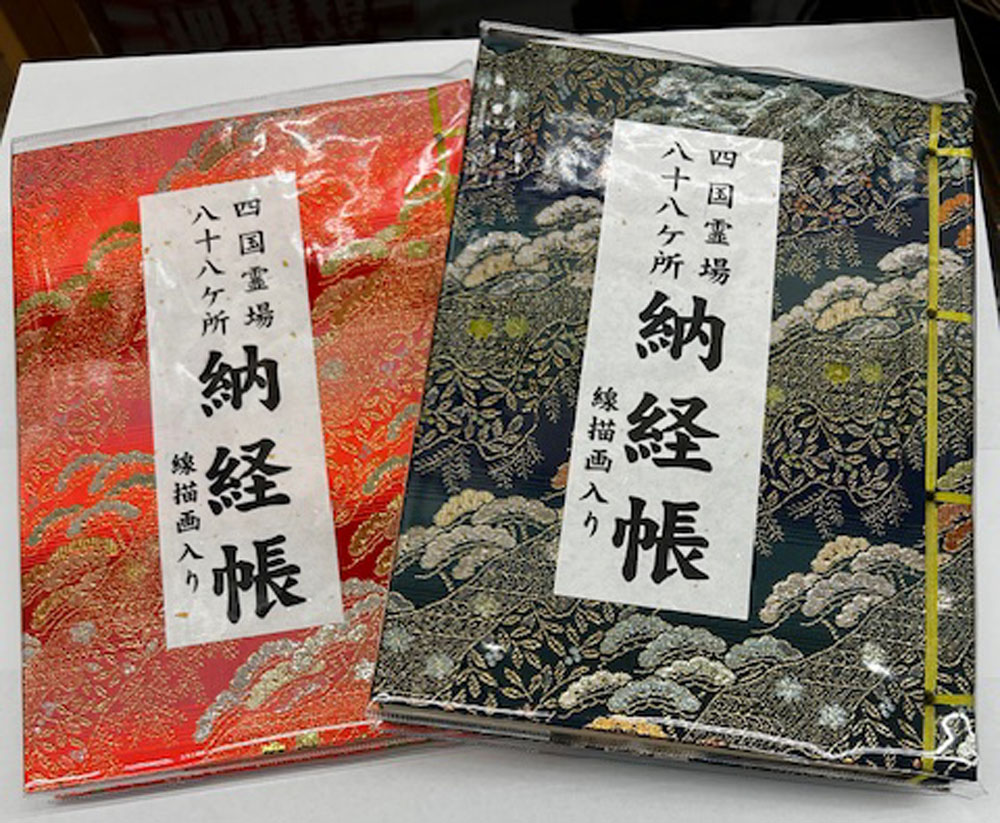 四国霊場
八十八ケ所
納経帳
線描画入り
四国霊場
八十八ケ所
納経帳
線描画入り